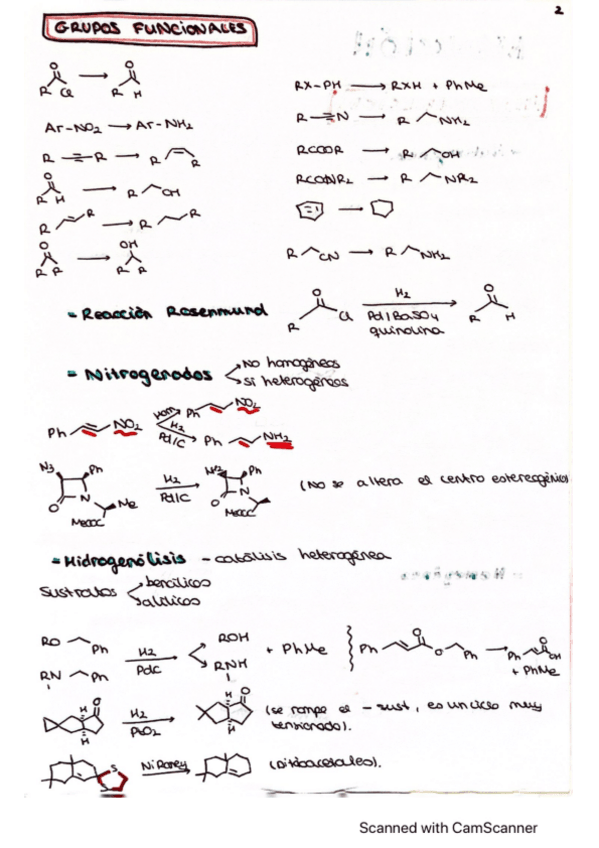 2
GRUPOS FUNCIONALES
R Cl → R H
RX-PH → RXH + PhMe
Ar-NO2 → Ar-NH2
R ≡N → R NH2
R R → R R
RCOOR → R OH
R H → R OH
RCONR2 → R NR2
R R → R R
R CN → R NH2
O R R → OH R R
- Reacción Rosenmund
R O Cl H2 Pd/BaSO4 quinolina R O H
- Nitrogenados
No homogéneos
si heterogéneos
Ph NO2 Hom Ph NO2
H2 Pd/C Ph NH2
N3 Ph O N Me MeOOC H2 Pd/C NH2 Ph O N MeOOC
(No se altera el centro estereogénico)
- Hidrogenólisis - catálisis heterogénea
Sustratos
bencílicos
alílicos
RO Ph
RN Ph
H2 PdC
ROH
RNH
+ PhMe
Ph O O Ph → Ph O OH + PhMe
H O H H2 PtO2 H O H
(se rompe el - sust, es un ciclo muy
tensionado).
S S Ni Raney
(Ditioacetales).
Scanned with CamScanner